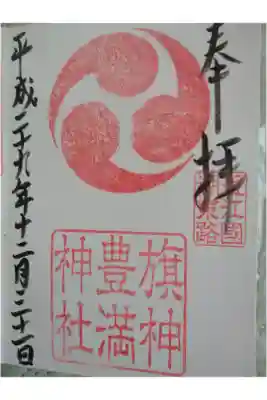 奉拝
旗神
豊満
神社
平成二十九年十二月二十一日